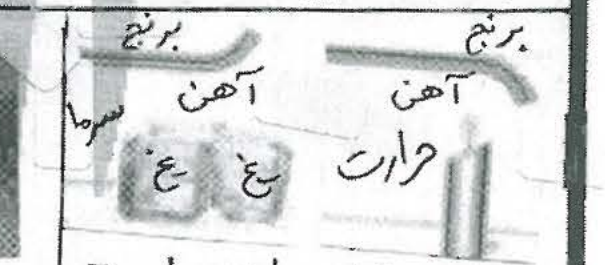 برنج
آهن
حرارت
برنج
آهن
سرما
یخ
یخ